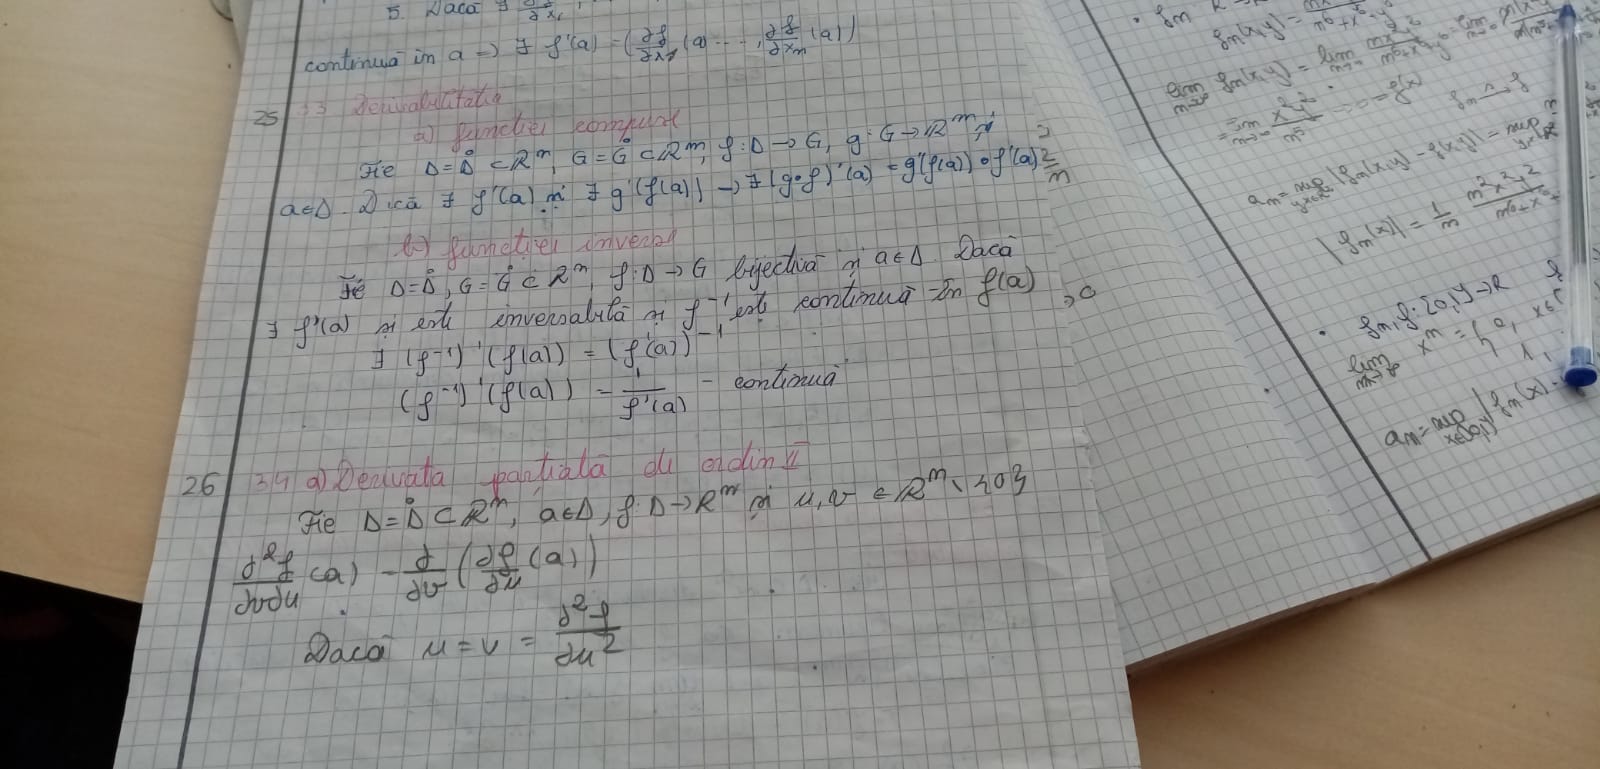 5. Dacă ∃ ∂f/∂x₁
continuă în a => ∃ f'(a) = (∂f/∂x₁ (a) ..., ∂f/∂xₙ (a))
25 33 Derivabilitatea
a) funcției compuse
Fie D=D̊ ⊂ Rⁿ, G=G̊ ⊂ Rᵐ, f:D→G, g:G→Rᵐ, și
a∈D. Dacă ∃ f'(a) și ∃ g'(f(a)) → ∃ (g∘f)'(a) = g'(f(a)) ∘ f'(a)
b) funcției inverse
Fie D=D̊, G=G̊ ⊂ Rⁿ, f:D→G bijectivă și a∈D. Dacă
∃ f'(a) și este inversabilă și f⁻¹ este continuă în f(a)
∃ (f⁻¹)'(f(a)) = (f'(a))⁻¹
(f⁻¹)'(f(a)) = 1/f'(a) - continuă
26 34 a) Derivata parțială de ordin II
Fie D=D̊ ⊂ Rⁿ, a∈D, f:D→Rᵐ și u,v ∈ Rⁿ\{0}
∂²f/∂v∂u (a) - ∂/∂v (∂f/∂u (a))
Dacă u=v = ∂²f/∂u²
lim fn(x,y) = lim
= lim x²y²/n⁵ = 0 = f(x)
fn → f
an = sup |fn(x,y) - f(x,y)| = sup
|fn(x)| = 1/n
fn, f: [0,1] → R
lim xⁿ = { 0, x∈[
1,
an = sup x∈[0,1] |fn(x) -